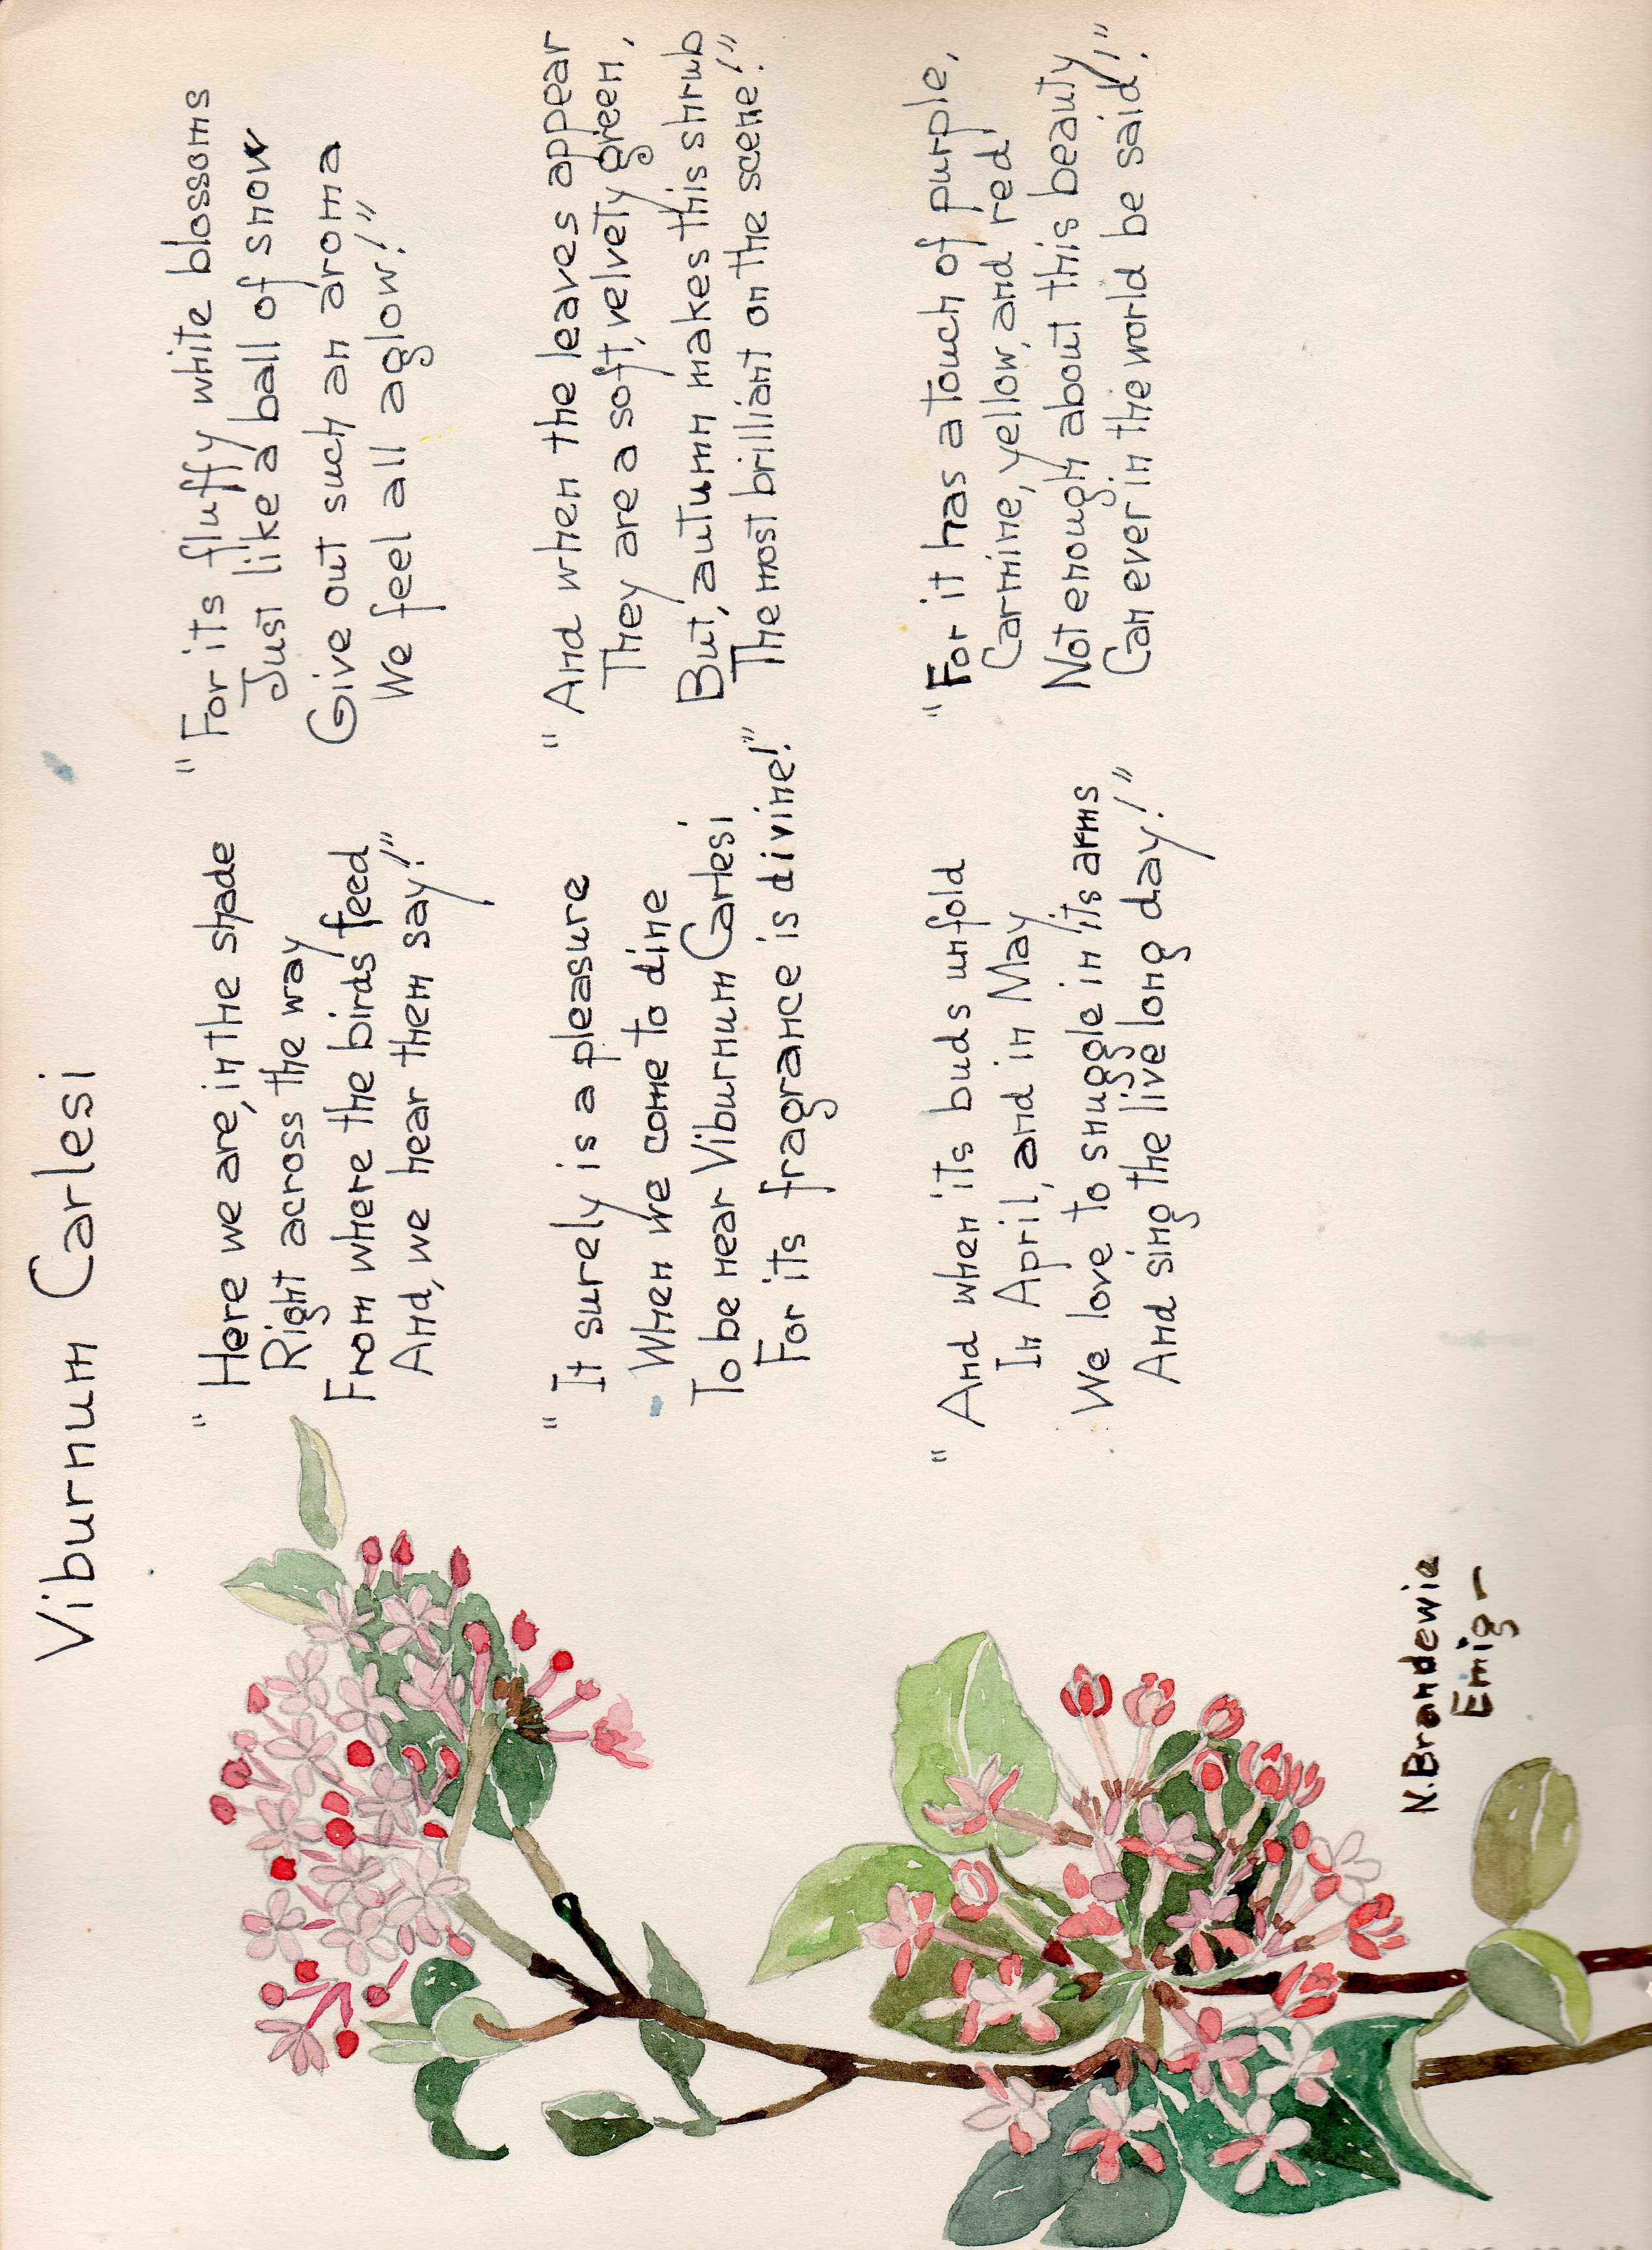 Viburnum Carlesi
"Here we are, in the shade
Right across the way
From where the birds feed
And, we hear them say!"
"It surely is a pleasure
When we come to dine
To be near Viburnum Carlesi
For its fragrance is divine!"
"And when its buds unfold
In April, and in May
We love to snuggle in its arms
And sing the live long day!"
"For its fluffy white blossoms
Just like a ball of snow
Give out such an aroma
We feel all aglow!"
"And when the leaves appear
They are a soft, velvety green,
But, autumn makes this shrub
The most brilliant on the scene!"
"For it has a touch of purple,
Carmine, yellow, and red
Not enough about this beauty
Can ever in the world be said!"
N. Brandewie
Emig-